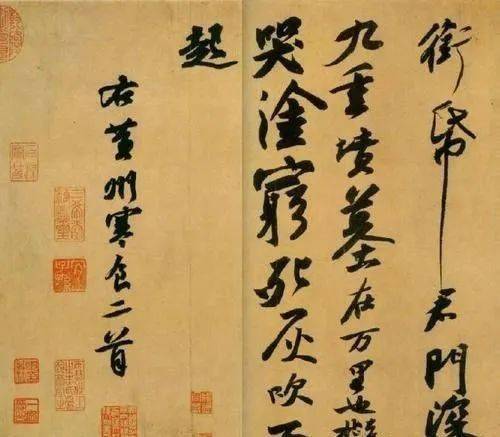 銜帋君門深
九重墳墓在万里也擬
哭塗窮死灰吹不
起
右黄州寒食二首